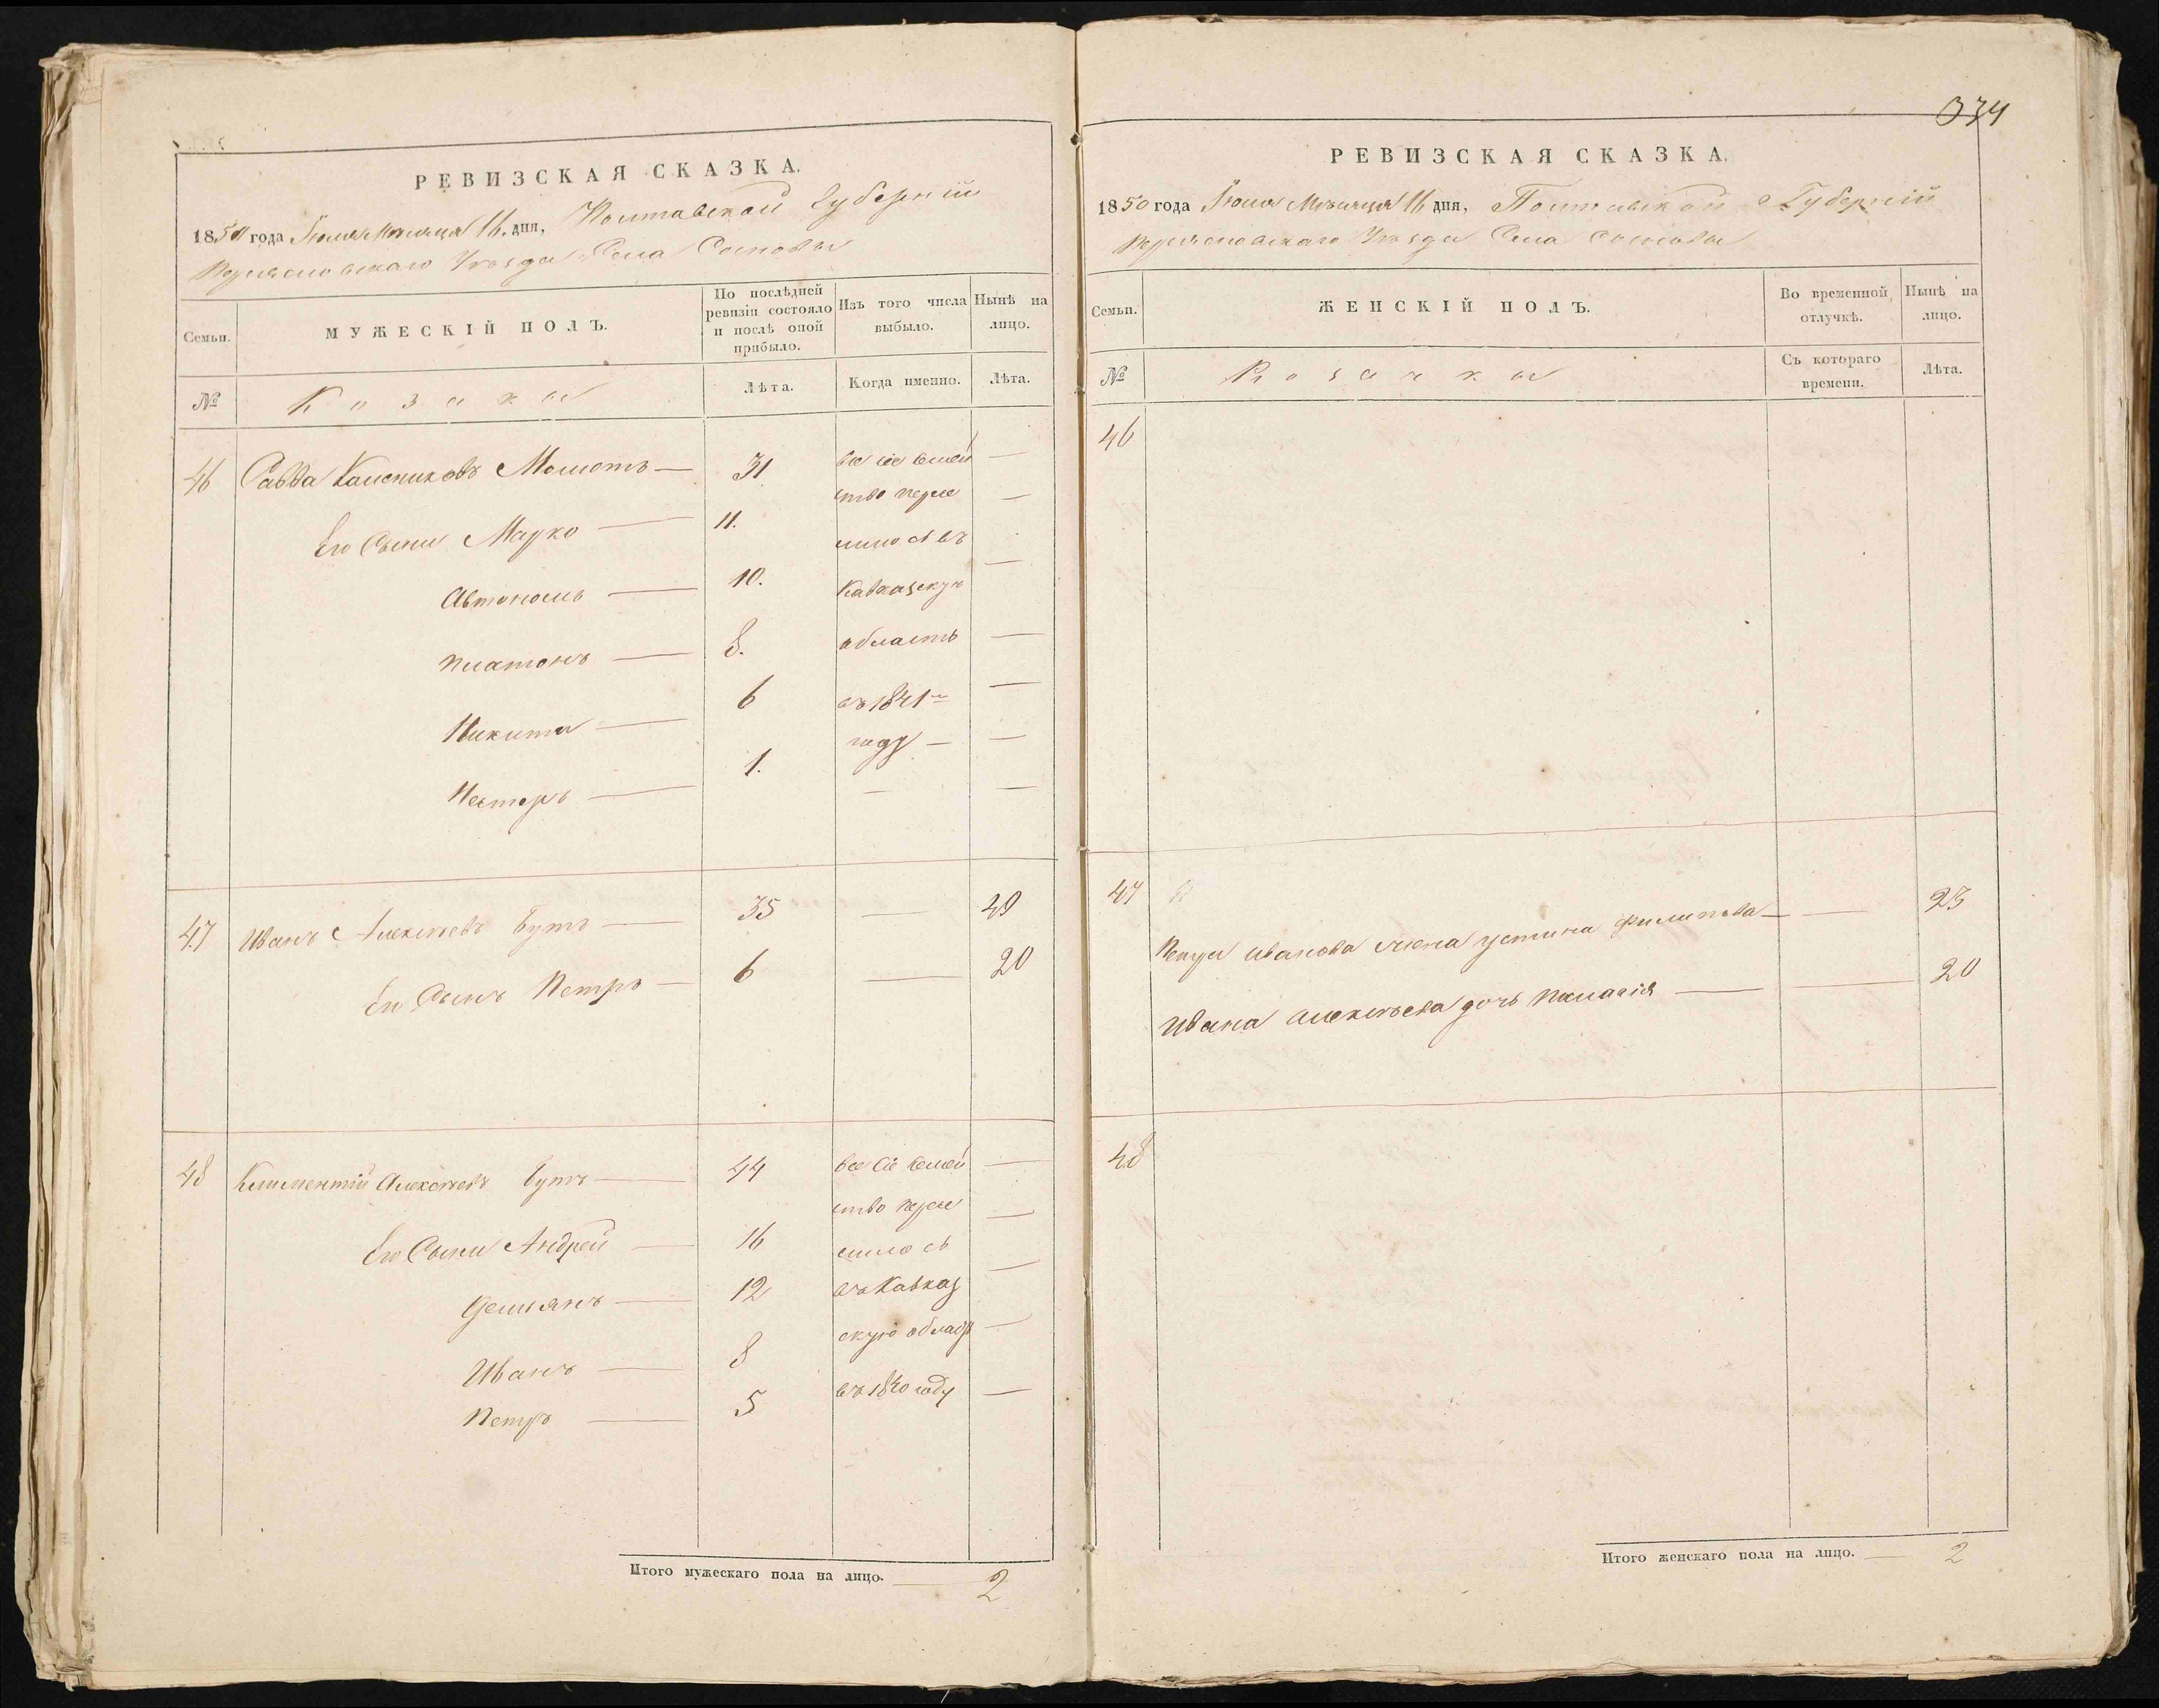 РЕВИЗСКАЯ СКАЗКА.
1850 года Іюля Мѣсяца 16. дня, Полтавской Губерніи
Переяславскаго Уѣзда Села Сосновы
Семьи. МУЖЕСКІЙ ПОЛЪ. По послѣдней ревизіи состояло и послѣ оной прибыло. Изъ того числа выбыло. Нынѣ на лицо.
№ Козаки Лѣта. Когда именно. Лѣта.
46 Савва Мамотъ — 31 все сіе семей —
Его Сыни Марко — 11. ство пересе —
Автономъ — 10. лилось въ —
Платонъ — 8. Кавказскую —
область
Никита — 6 въ 1841м —
Нестеръ — 1. году — —
— —
47 Иванъ Алексѣевъ Бутъ — 35 — 49
Его Сынъ Петръ — 6 — 20
48 Климентій Алексѣевъ Бутъ — 44 все сіе семей —
Его Сыни Андрей — 16 ство пересе —
лилось
Демьянъ — 12 въ Кавказ —
Иванъ — 8 скую область —
Петръ — 5 въ 1840 году —
Итого мужескаго пола на лицо. — 2
034
РЕВИЗСКАЯ СКАЗКА.
1850 года Іюля Мѣсяца 16 дня, Полтавской Губерніи
Переяславскаго Уѣзда Села Сосновы
Семьи. ЖЕНСКІЙ ПОЛЪ. Во временной отлучкѣ. Нынѣ на лицо.
№ Козачки Съ котораго времени. Лѣта.
46
47
Петра Иванова жена Устина Филипова — — 23
Ивана Алексѣева дочь Пелагія — — 20
48
Итого женскаго пола на лицо. — 2